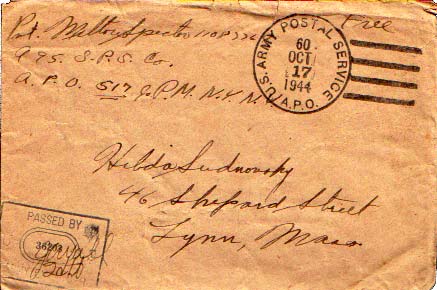 Pvt. Milton Spector
Free
U.S. ARMY POSTAL SERVICE
60
OCT
17
1944
A.P.O.
975 S.P.S. Co.
A.P.O. 517 P.M. N.Y. N.Y.
Hilda Sudnovsky
46 Shepard Street
Lynn, Mass
PASSED BY